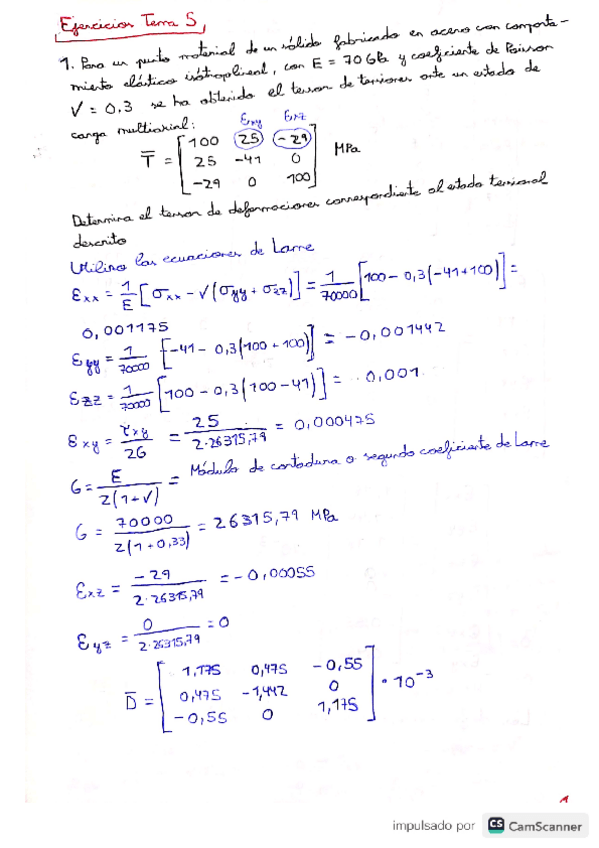 Ejercicios Tema 5
1. Para un punto material de un sólido fabricado en acero con comporta-
miento elástico isótropolineal, con E = 70 GPa y coeficiente de Poisson
V = 0.3 se ha obtenido el tensor de tensiones ante un estado de
carga multiaxial:
Exy Exz
T = [100 25 -29
25 -41 0
-29 0 100] MPa
Determina el tensor de deformaciones correspondiente al estado tensional
descrito
Utilizo las ecuaciones de Lame
Exx = 1/E [σxx - V(σyy + σzz)] = 1/70000 [100 - 0,3(-41+100)] =
0,001175
Eyy = 1/70000 [-41 - 0,3(100 + 100)] = -0,001442
Ezz = 1/70000 [100 - 0,3(100 - 41)] = 0,001
Exy = τxy/2G = 25/2·26315,79 = 0,000475
G = E/2(1+V) = Módulo de cortadura o segundo coeficiente de Lame
G = 70000/2(1+0,33) = 26315,79 MPa
Exz = -29/2·26315,79 = -0,00055
Eyz = 0/2·26315,79 = 0
D = [1,175 0,475 -0,55
0,475 -1,442 0
-0,55 0 1,175] · 10⁻³
1
impulsado por CS CamScanner